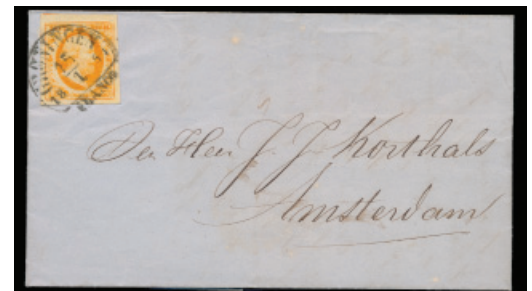 GRONINGEN
FRANCO
Den Heer J. J. Korthals
Amsterdam